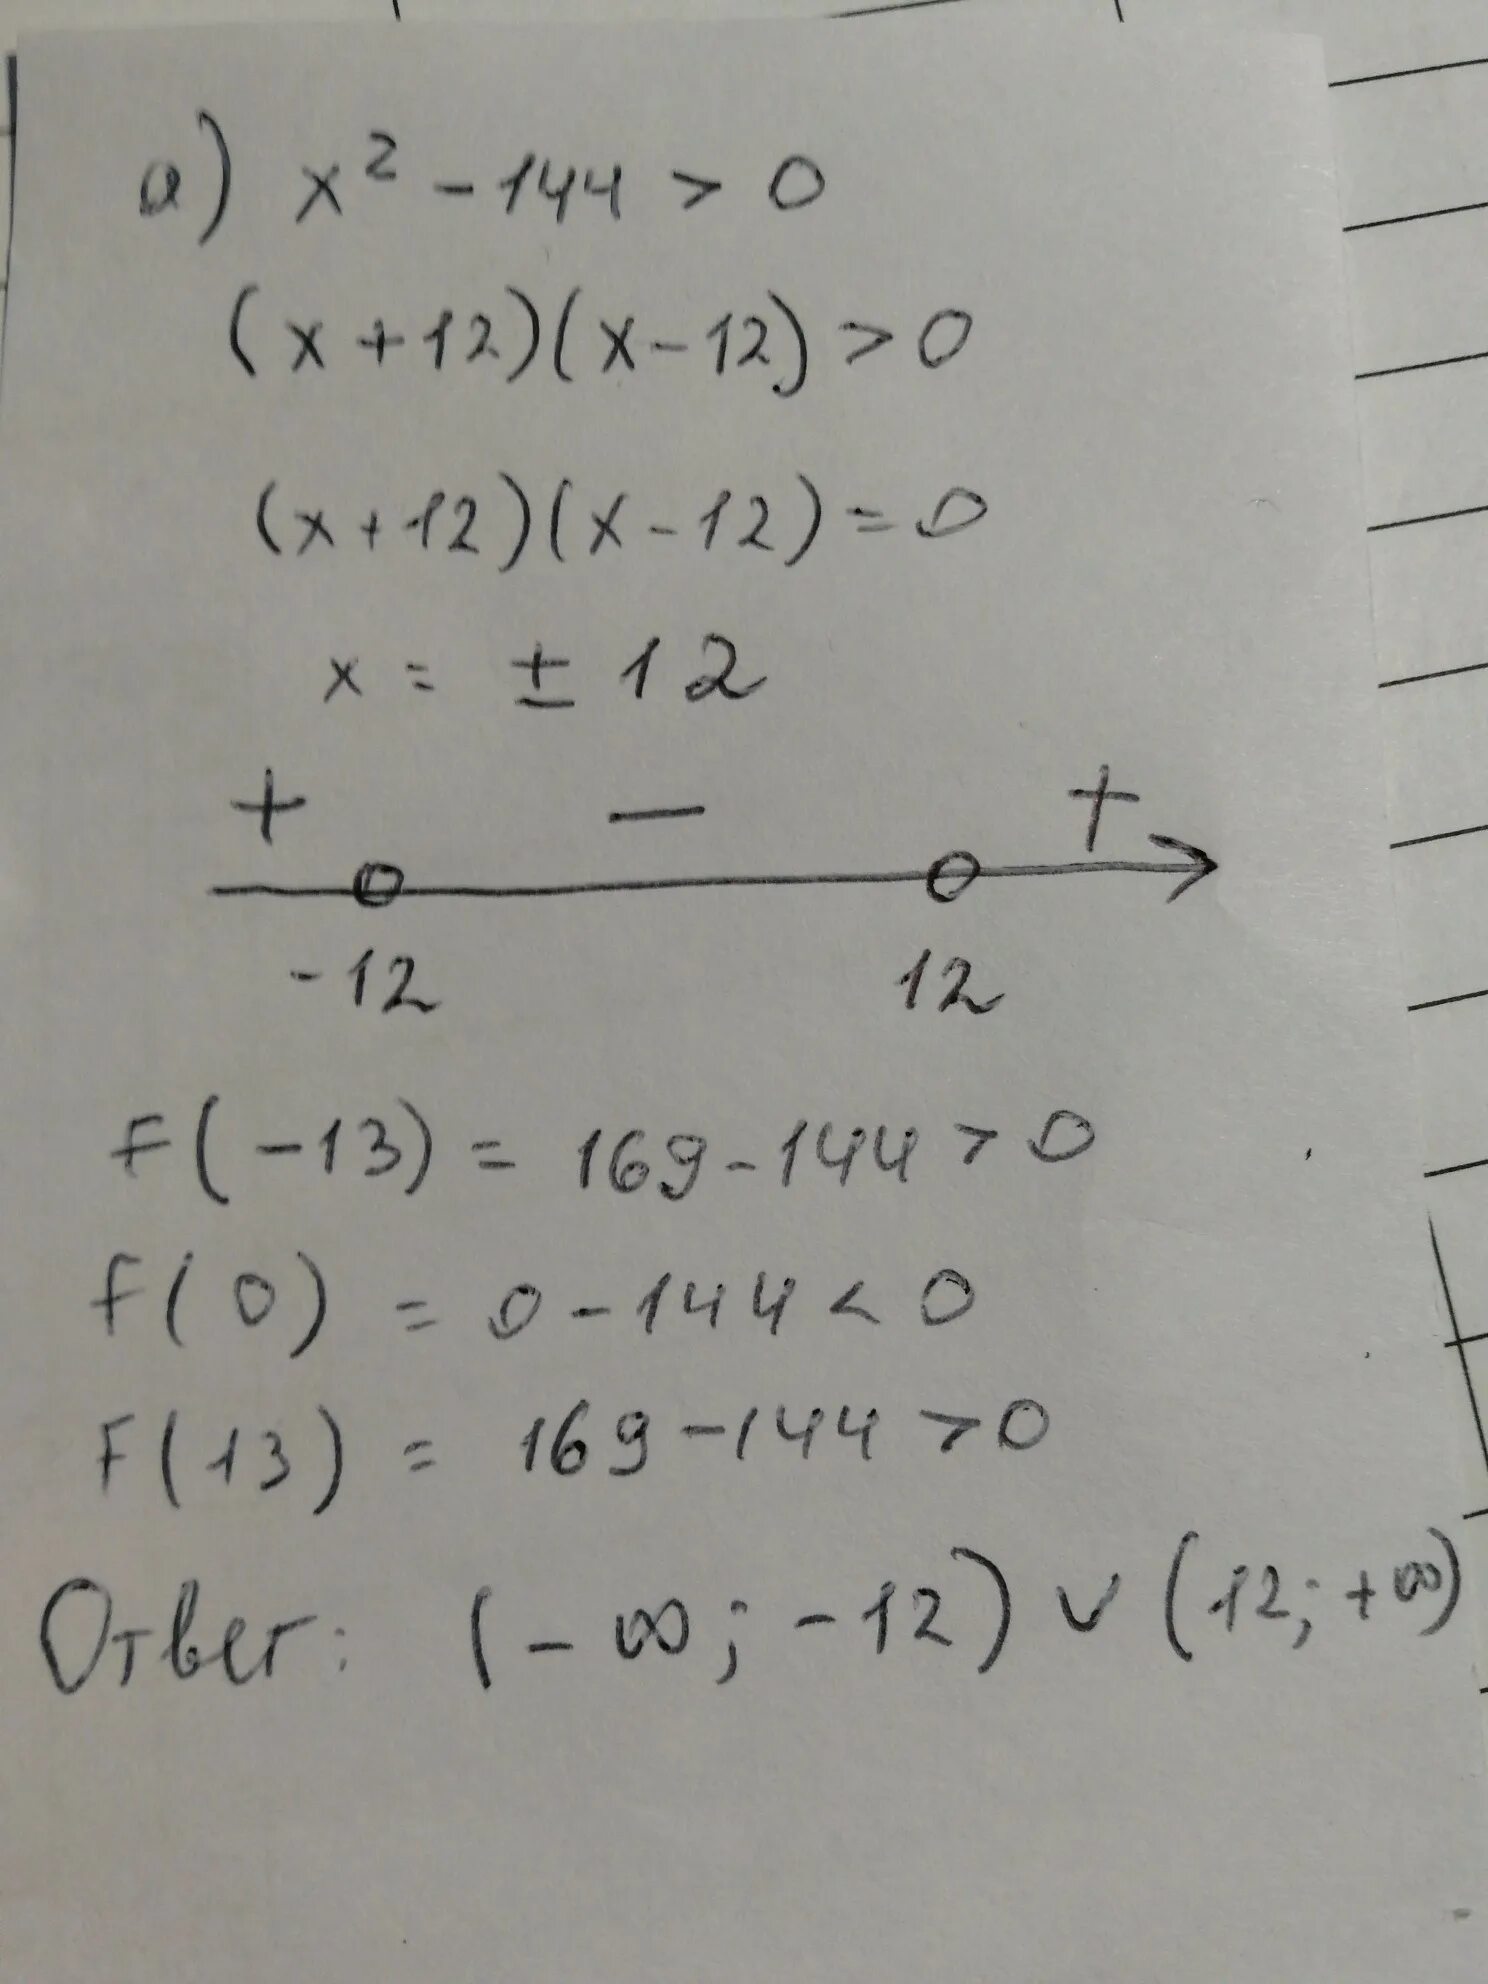 а) x² - 144 > 0
(x + 12)(x - 12) > 0
(x + 12)(x - 12) = 0
x = ± 12
+ — +
-12 12
F(-13) = 169 - 144 > 0
F(0) = 0 - 144 < 0
F(13) = 169 - 144 > 0
Ответ: (-∞; -12) ∪ (12; +∞)